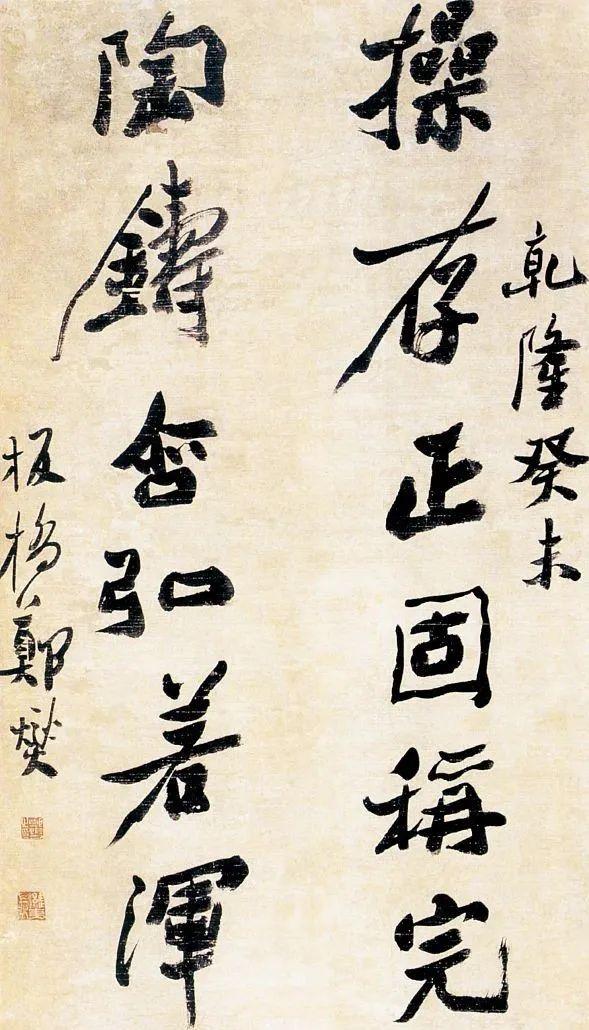 乾隆癸未
操存正固稱完
陶鑄含弘若渾
板橋鄭燮